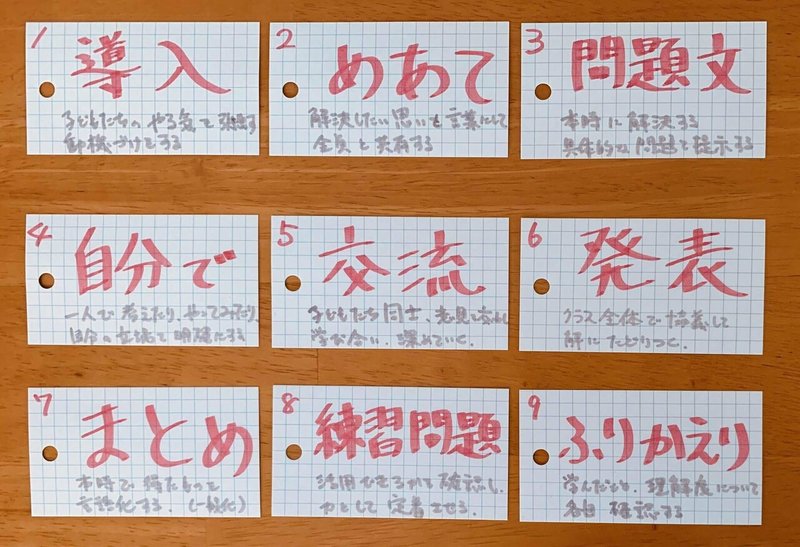 1 導入
子どもたちのやる気を引出す
動機づけをする
2 めあて
解決したい思いを言葉にして
全員と共有する
3 問題文
本時に解決する
具体的な問題を提示する
4 自分で
一人で考えたり、やってみたり、
自分の立場を明確にする
5 交流
子どもたち同士、意見を交わし
学び合い、深めていく。
6 発表
クラス全体で協議して
解にたどりつく。
7 まとめ
本時で得たもって
言語化する。(一般化)
8 練習問題
活用できるかを確認し、
力として定着させる。
9 ふりかえり
学んだこと、理解度について
各自確認する